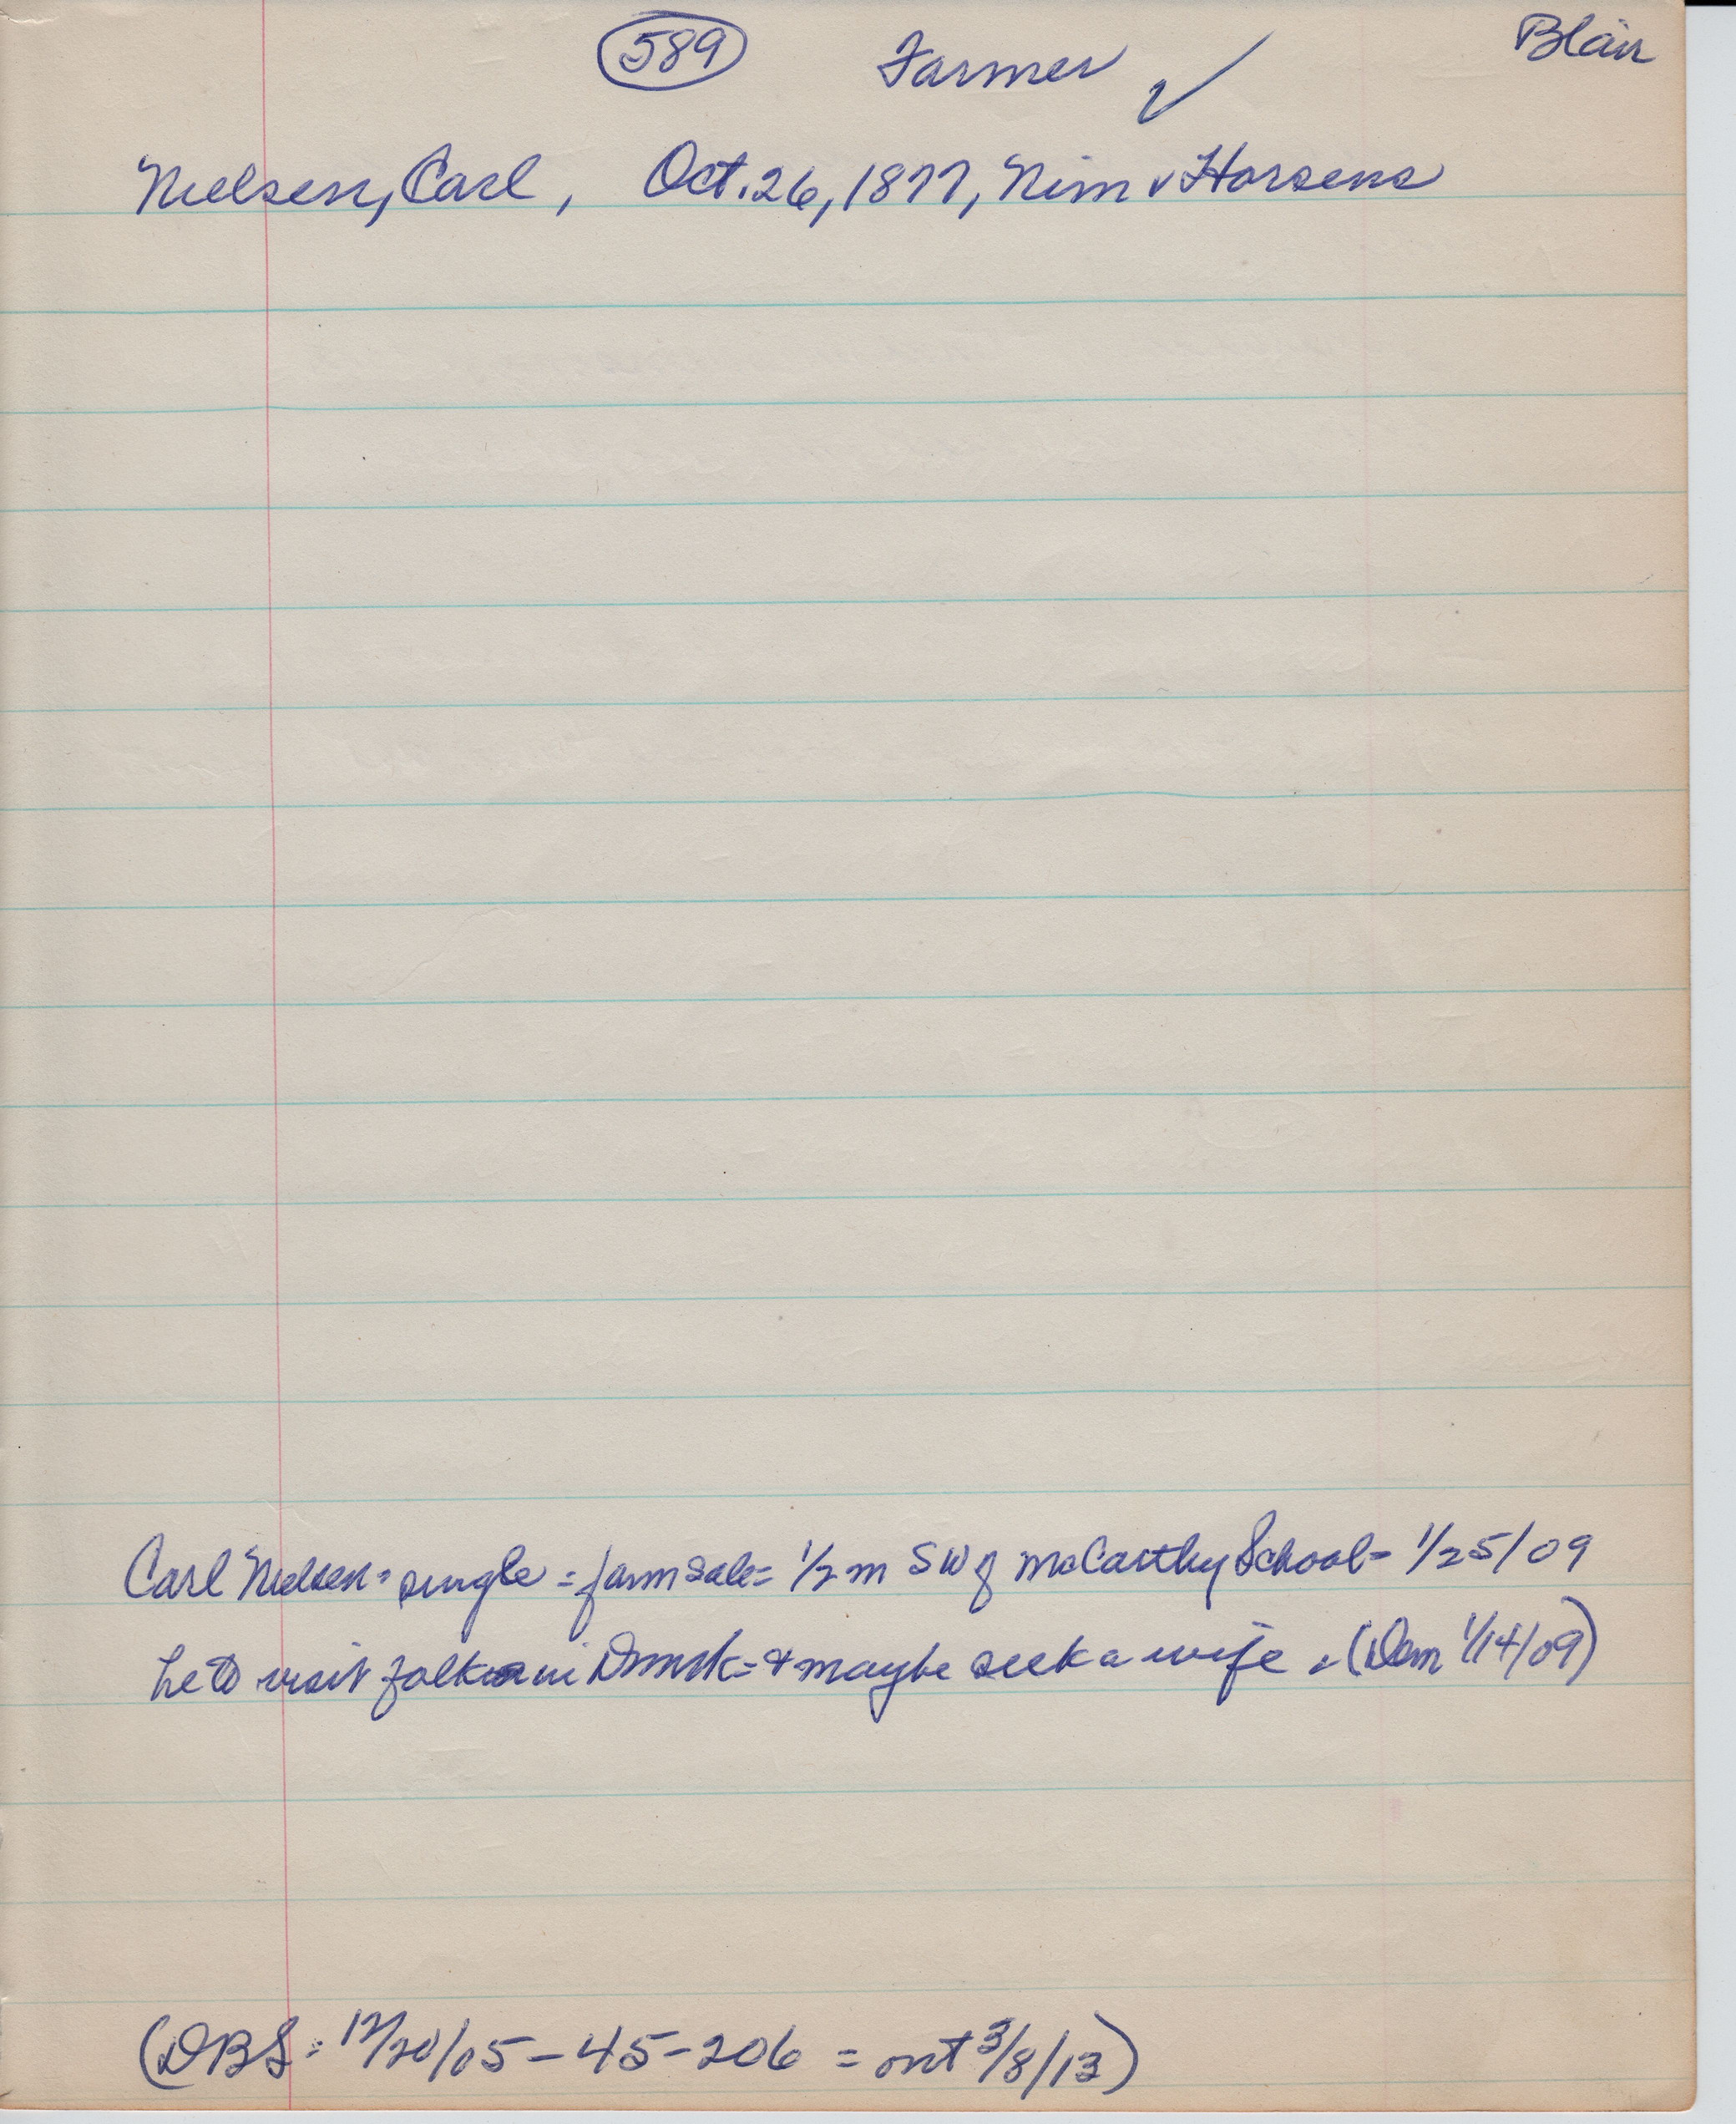 589 Farmer ✓ Blair
Nielsen, Carl, Oct. 26, 1877, Nim v Horsens
Carl Nielsen = single = farm sale = 1/2 m SW of McCarthy School = 1/25/09
he to visit folks in Dnmrk = & maybe seek a wife. (Dem 1/14/09)
(DBS: 12/20/05 - 45 - 206 = out 3/8/13)